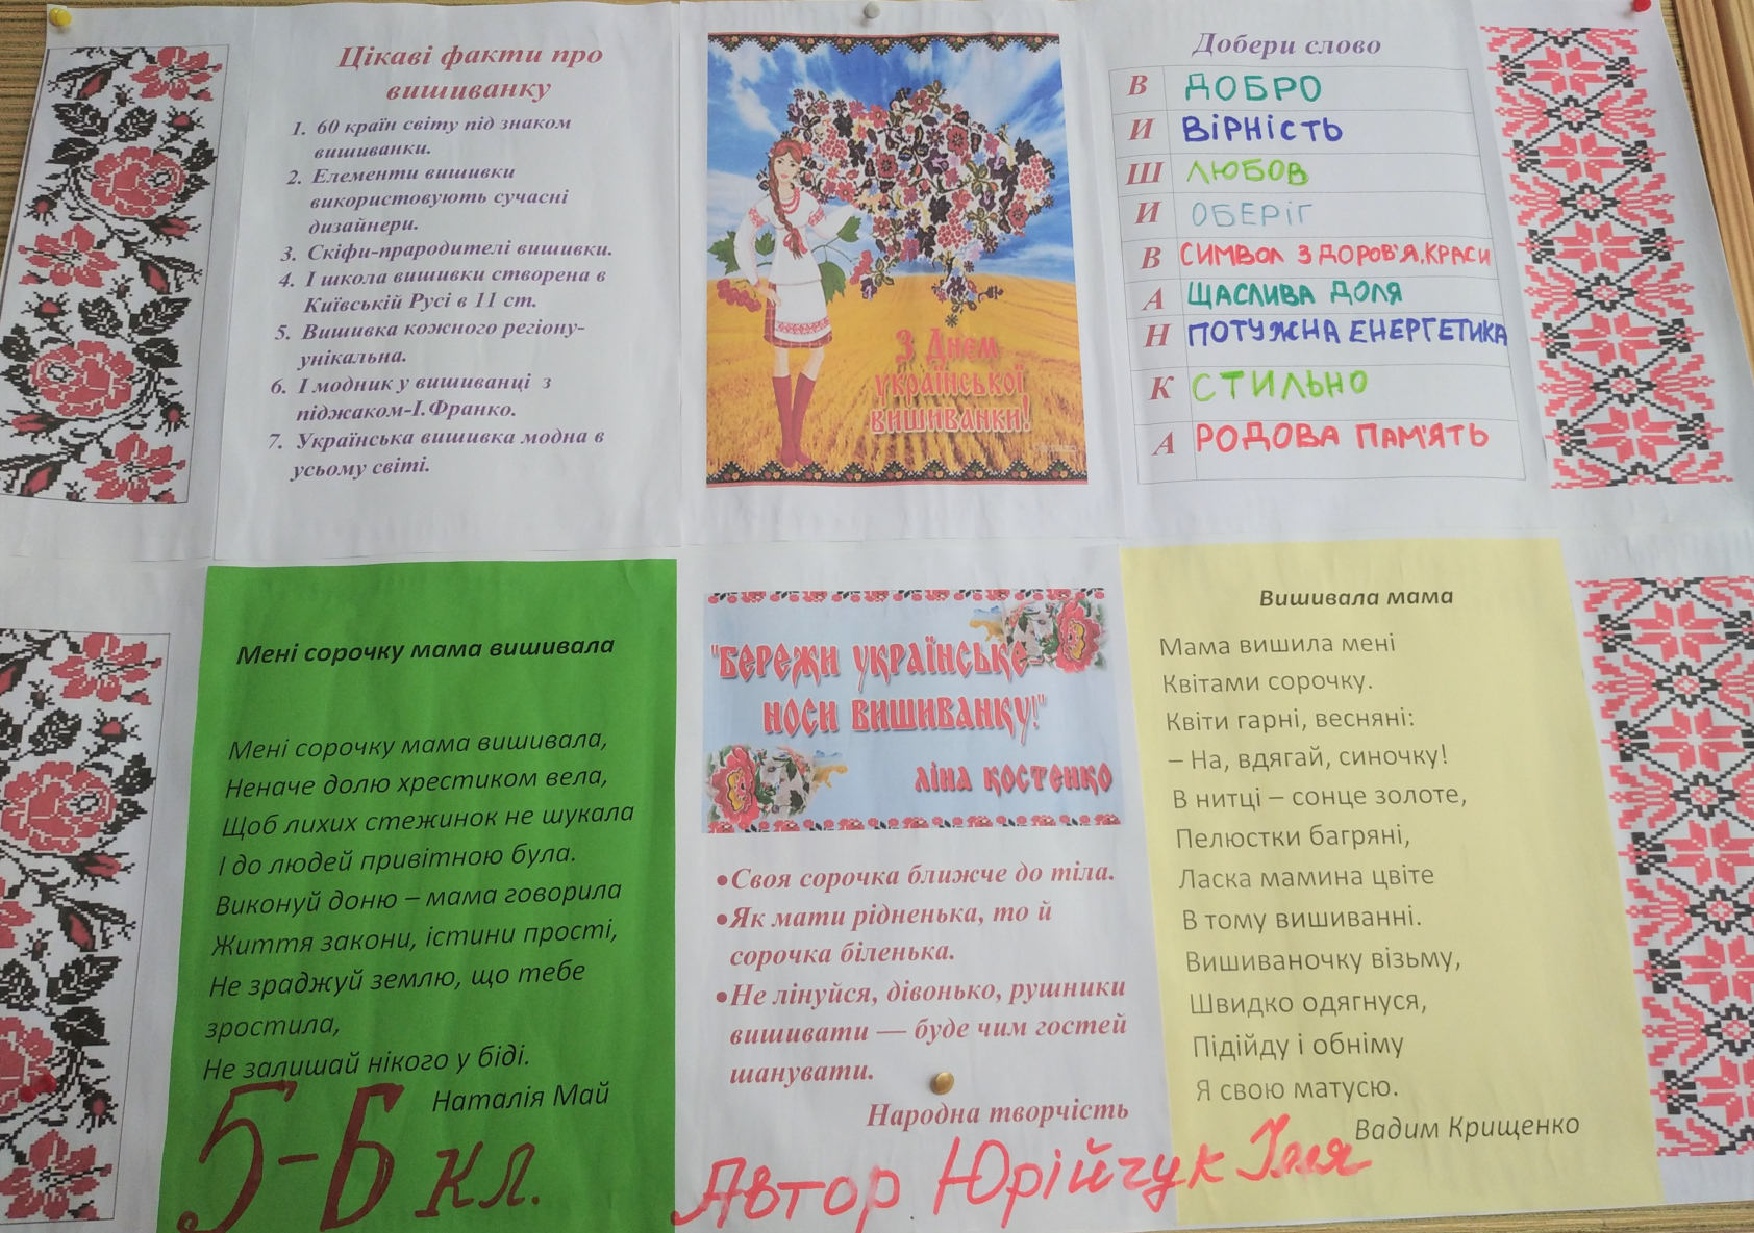 Цікаві факти про
вишиванку
1. 60 країн світу під знаком
вишиванки.
2. Елементи вишивки
використовують сучасні
дизайнери.
3. Скіфи-прародителі вишивки.
4. І школа вишивки створена в
Київській Русі в 11 ст.
5. Вишивка кожного регіону-
унікальна.
6. І модник у вишиванці з
піджаком-І.Франко.
7. Українська вишивка модна в
усьому світі.
З Днем
української
вишиванки!
Добери слово
В ДОБРО
И ВІРНІСТЬ
Ш ЛЮБОВ
И ОБЕРІГ
В СИМВОЛ ЗДОРОВ'Я,КРАСИ
А ЩАСЛИВА ДОЛЯ
Н ПОТУЖНА ЕНЕРГЕТИКА
К СТИЛЬНО
А РОДОВА ПАМ'ЯТЬ
Мені сорочку мама вишивала
Мені сорочку мама вишивала,
Неначе долю хрестиком вела,
Щоб лихих стежинок не шукала
І до людей привітною була.
Виконуй доню – мама говорила
Життя закони, істини прості,
Не зраджуй землю, що тебе
зростила,
Не залишай нікого у біді.
Наталія Май
5-Б кл.
"БЕРЕЖИ УКРАЇНСЬКЕ-
НОСИ ВИШИВАНКУ!"
ЛІНА КОСТЕНКО
•Своя сорочка ближче до тіла.
•Як мати рідненька, то й
сорочка біленька.
•Не лінуйся, дівонько, рушники
вишивати — буде чим гостей
шанувати.
Народна творчість
Автор Юрійчук Ілля
Вишивала мама
Мама вишила мені
Квітами сорочку.
Квіти гарні, весняні:
– На, вдягай, синочку!
В нитці – сонце золоте,
Пелюстки багряні,
Ласка мамина цвіте
В тому вишиванні.
Вишиваночку візьму,
Швидко одягнуся,
Підійду і обніму
Я свою матусю.
Вадим Крищенко